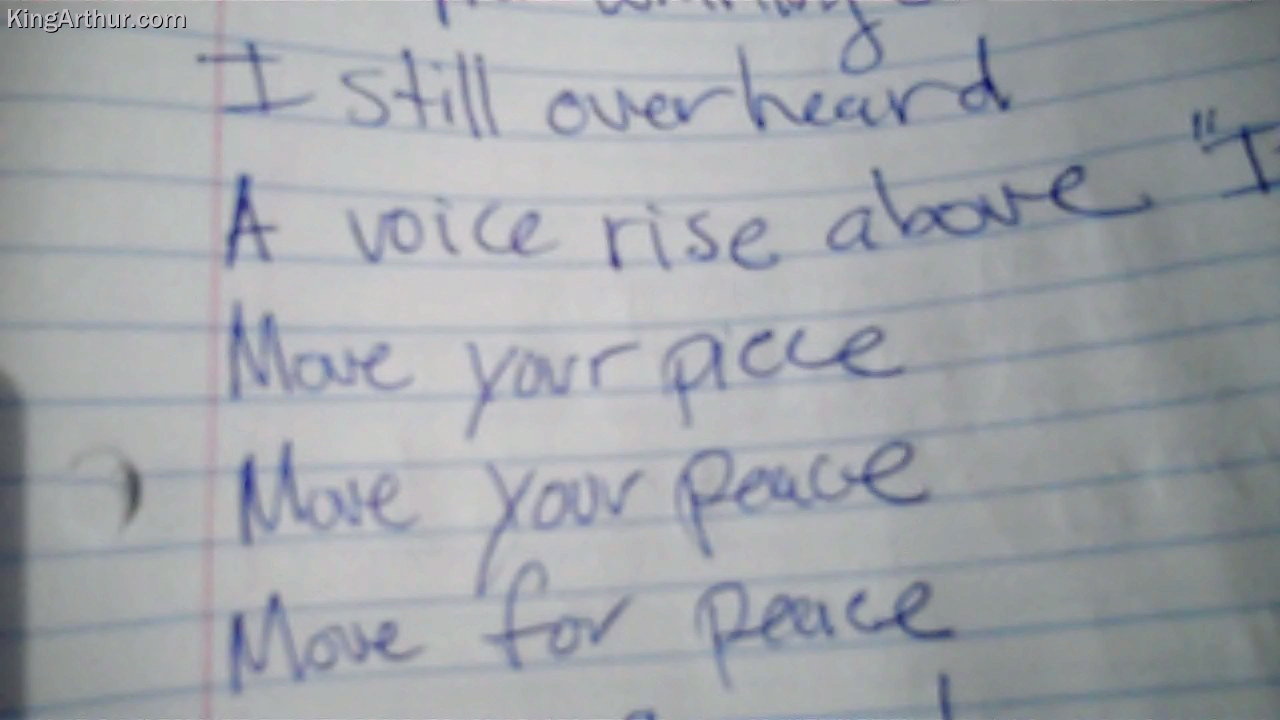 KingArthur.com
I still overheard
A voice rise above "I
Move your piece
Move your peace
Move for peace